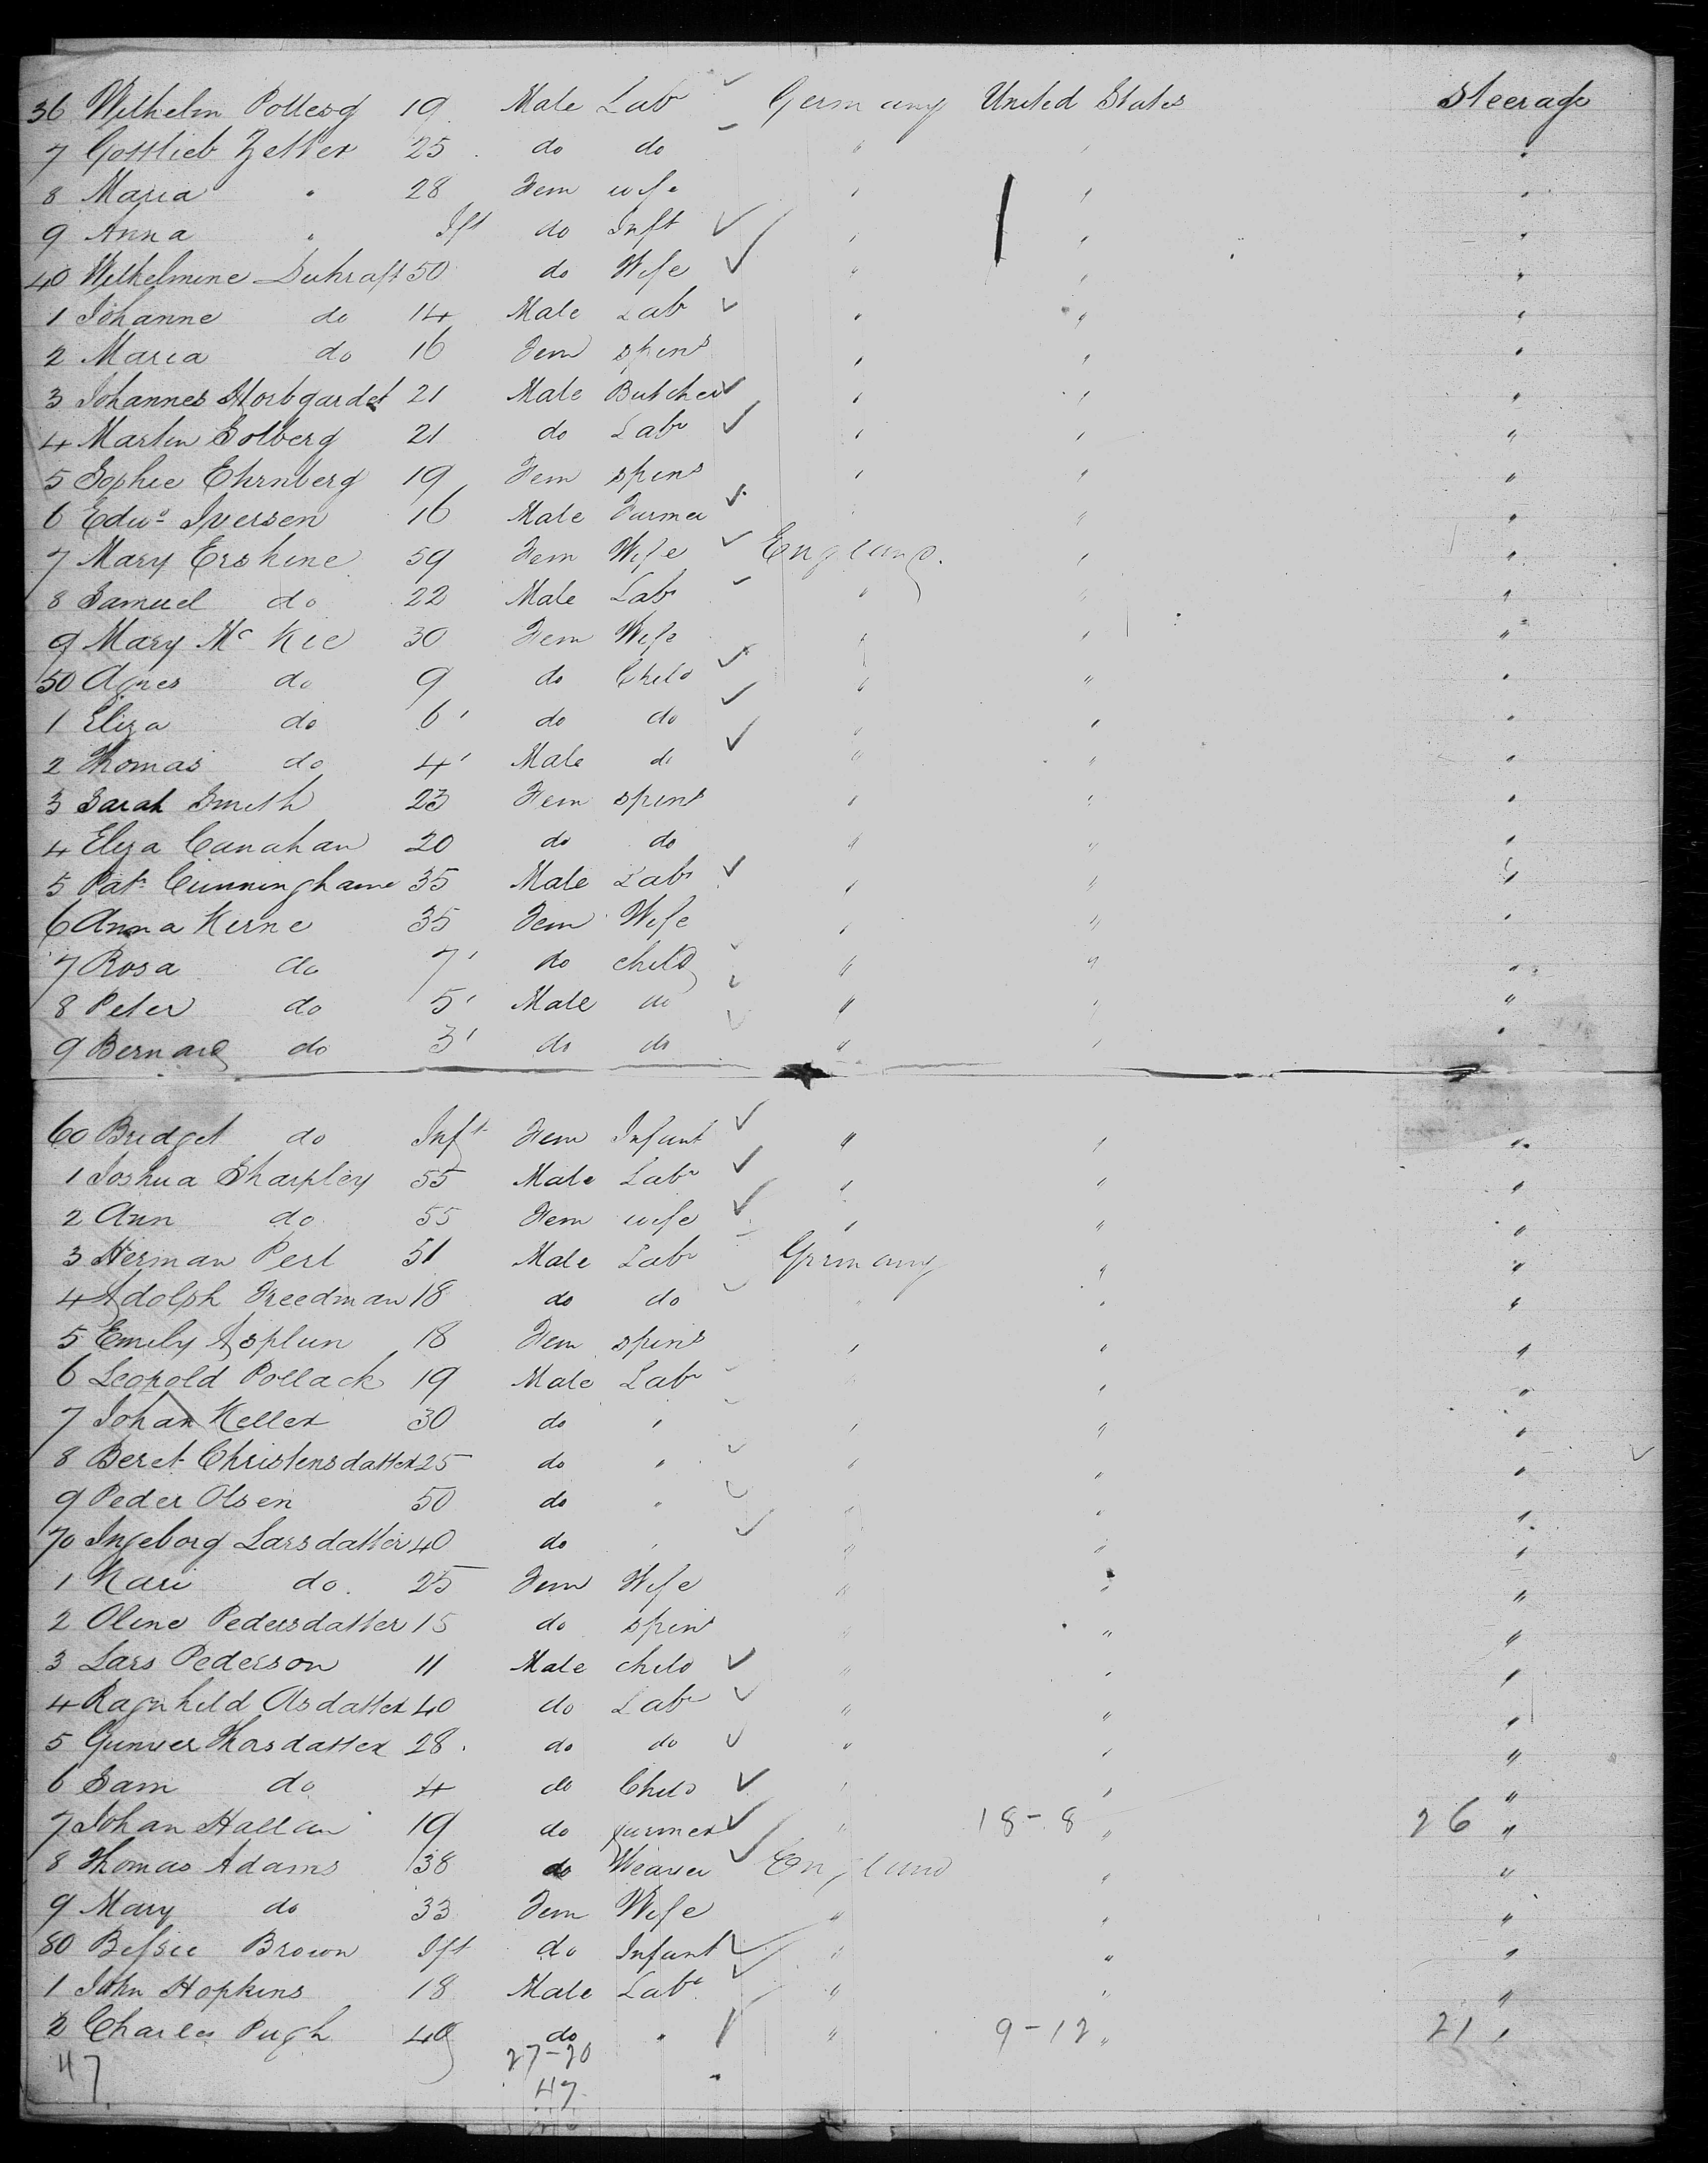 36 Wilhelm Pollesg 19 Male Labr Germany United States Steerage
7 Gottlieb Zetter 25 do do " " "
8 Maria " 28 Fem wife " " "
9 Anna " Ift do Inft " " "
40 Wilhelmine Duhraft 50 do Wife " " "
1 Johanne do 14 Male Lab " " "
2 Maria do 16 Fem spins " " "
3 Johannes Horbgardet 21 Male Butcher " " "
4 Martin Solberg 21 do Labr " " "
5 Sophie Ehrnberg 19 Fem spins " " "
6 Edwd Iversen 16 Male Farmer " " "
7 Mary Erskine 59 Fem Wife England. " "
8 Samuel do 22 Male Labr " " "
9 Mary Mc Kie 30 Fem Wife " " "
50 Agnes do 9 do Child " " "
1 Eliza do 6' do do " " "
2 Thomas do 4' Male do " " "
3 Sarah Smith 23 Fem spins " " "
4 Eliza Canahan 20 do do " " "
5 Patk Cunninghame 35 Male Labr " " "
6 Anna Kerne 35 Fem Wife " " "
7 Rosa do 7' do child " " "
8 Peter do 5' Male do " " "
9 Bernard do 3' do do " " "
60 Bridget do Inft Fem Infant " " "
1 Joshua Sharpley 55 Male Labr " " "
2 Ann do 55 Fem wife " " "
3 Herman Perl 51 Male Labr Germany " "
4 Adolph Freedman 18 do do " " "
5 Emily Asplun 18 Fem spins " " "
6 Leopold Pollack 19 Male Labr " " "
7 Johan Keller 30 do " " " "
8 Beret Christensdatter 25 do " " " "
9 Peder Olsen 50 do " " " "
70 Ingeborg Larsdatter 40 do " " " "
1 Kari do. 25 Fem Wife " " "
2 Oline Pedersdatter 15 do spins " " "
3 Lars Pederson 11 Male child " " "
4 Ragnhild Olsdatter 40 do Labr " " "
5 Gunver Thorsdatter 28. do do " " "
6 Sam do 4 do Child " " "
7 Johan Hallan 19 do farmer " 18-8 " 26 "
8 Thomas Adams 38 do Weaver England " "
9 Mary do 33 Fem Wife " " "
80 Bessie Brown Ift do Infant " " "
1 John Hopkins 18 Male Labr " " "
2 Charles Pugh 40 do " " 9-12 " 21 "
47 27-20
47